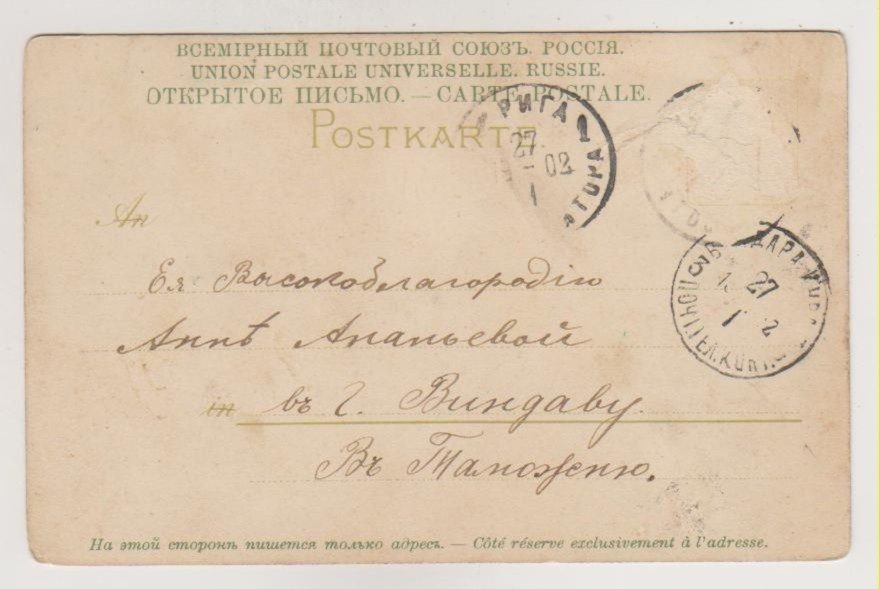 ВСЕМІРНЫЙ ПОЧТОВЫЙ СОЮЗЪ. РОССІЯ.
UNION POSTALE UNIVERSELLE. RUSSIE.
ОТКРЫТОЕ ПИСЬМО. — CARTE POSTALE.
POSTKARTE.
РИГА
27
1
02
An
Ея Высокоблагородію
27
1
2
Аннѣ Ананьевой
in въ г. Виндаву.
Въ Таможню.
На этой сторонѣ пишется только адресъ. — Côté réservé exclusivement à l'adresse.